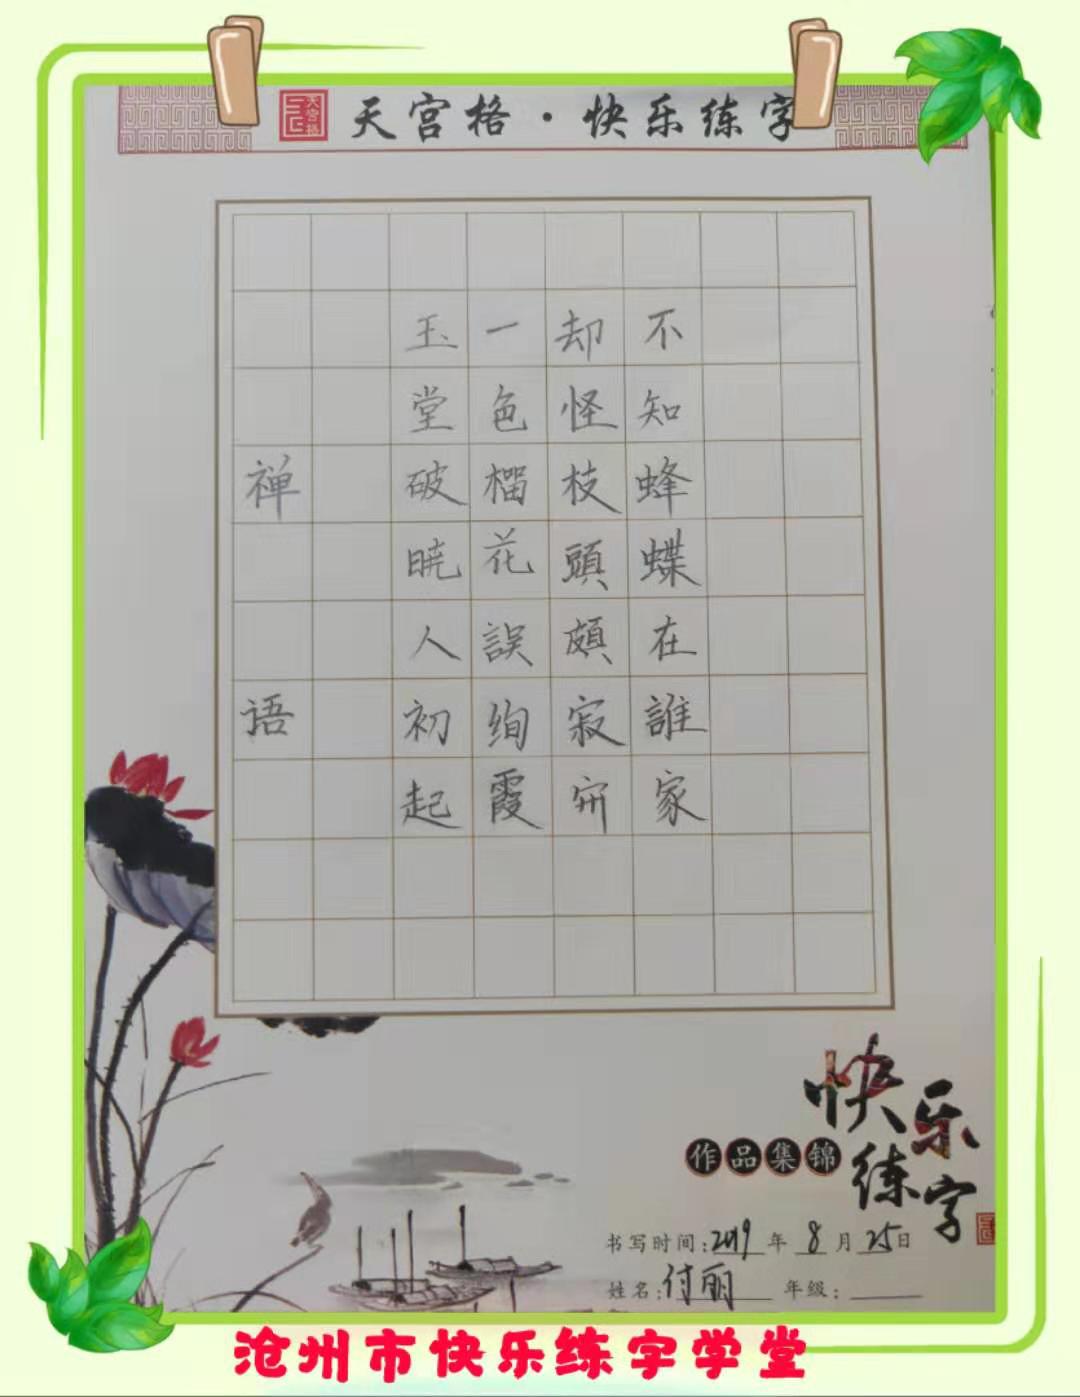 天宫格
天宫格·快乐练字
禅语
玉堂破晓人初起
一色榴花誤绚霞
却怪枝頭頗寂
不知蜂蝶在誰家
快乐练字
作品集锦
书写时间:2019年8月25日
姓名:付丽 年级:
沧州市快乐练字学堂